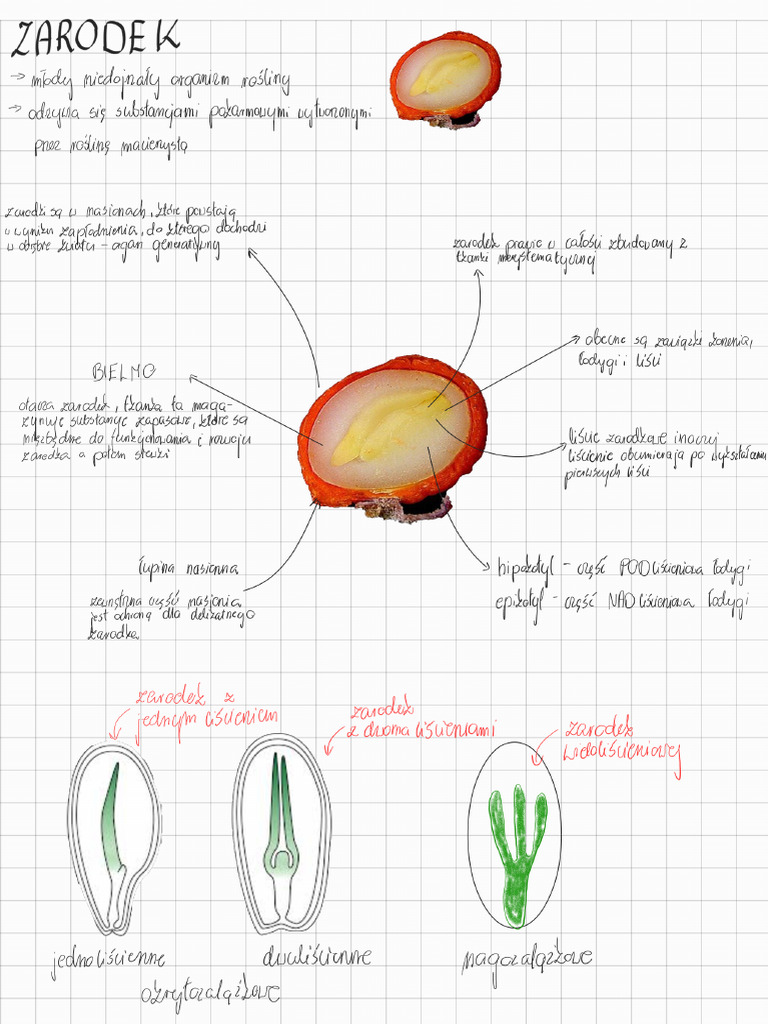 ZARODEK
→ młody niedojrzały organizm rośliny
→ odżywa się substancjami pokarmowymi wytworzonymi
przez roślinę macierzystą
zarodki są w nasionach, które powstają
w wyniku zapłodnienia, do którego dochodzi
w obrębie kwiatu - organ generatywny
zarodek prawie w całości zbudowany z
tkanki merystematycznej
obecne są zawiązki korzenia,
łodygi i liści
BIELMO
otacza zarodek, tkanka ta maga-
zynuje substancje zapasowe, które są
niezbędne do funkcjonowania i rozwoju
zarodka a potem siewki
liście zarodkowe inaczej
liścienie obumierają po wykształceniu
pierwszych liści
łupina nasienna
zewnętrzna część nasienia
jest ochroną dla delikatnego
zarodka
hipokotyl - część PODliścieniowa łodygi
epikotyl - część NADliścieniowa łodygi
zarodek z
jednym liścieniem
zarodek
z dwoma liścieniami
zarodek
wieloliścieniowy
jednoliścienne
dwuliścienne
nagozalążkowe
okrytozalążkowe